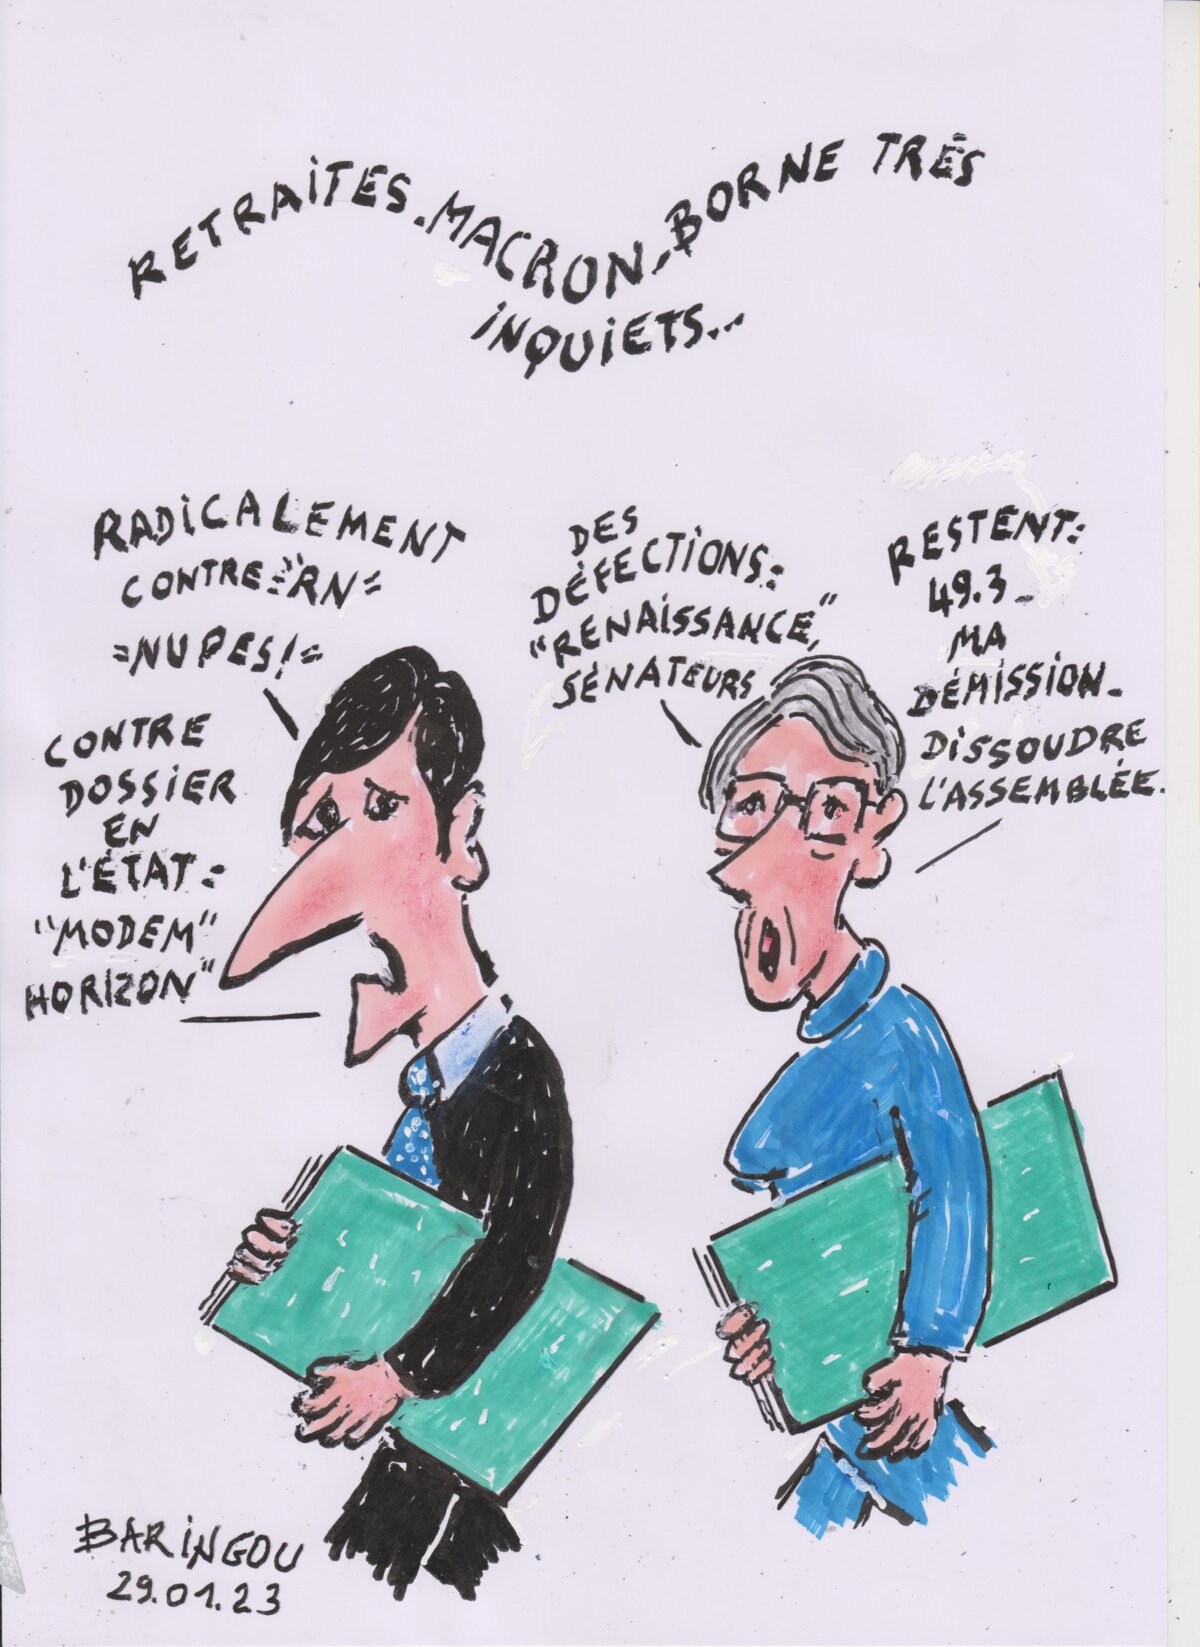 RETRAITES-MACRON,-BORNE TRÈS
INQUIETS...
RADICALEMENT
CONTRE="RN"=
=NUPES!=
CONTRE
DOSSIER
EN
L'ÉTAT:
"MODEM"
HORIZON"
DES
DÉFECTIONS:
"RENAISSANCE,"
SÉNATEURS
RESTENT:
49.3_
MA
DÉMISSION_
DISSOUDRE
L'ASSEMBLÉE.
BARINGOU
29.01.23